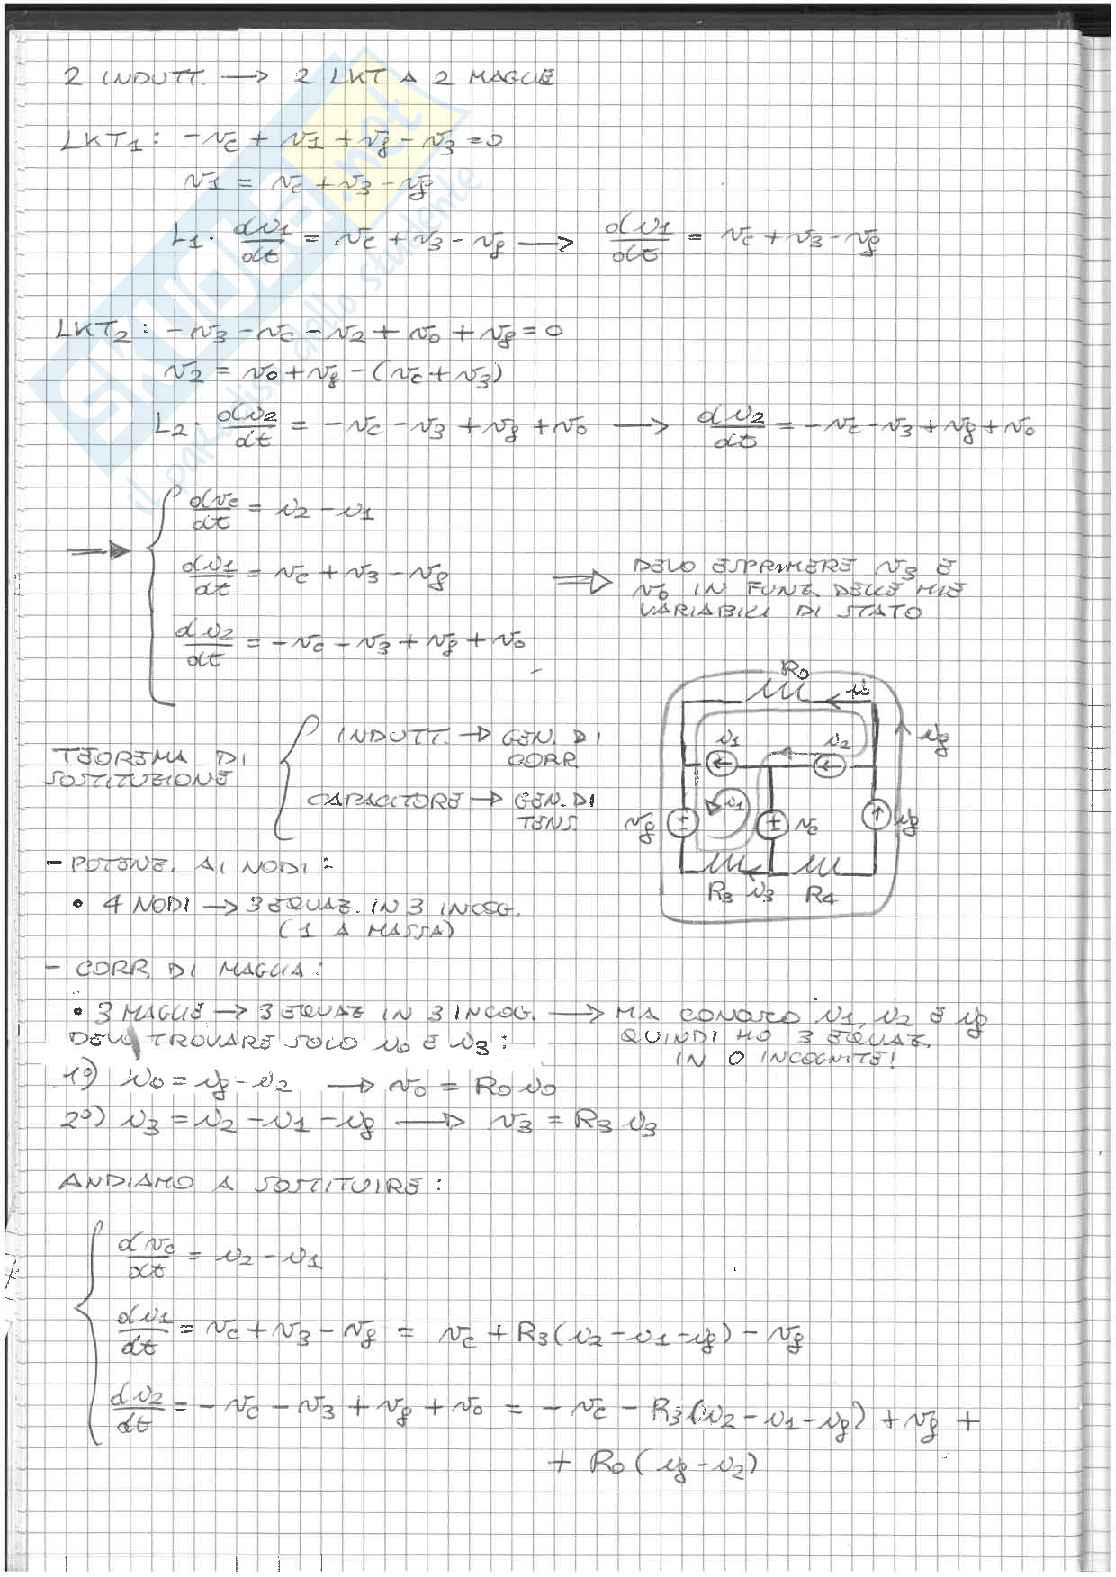 2 INDUTT. → 2 LKT A 2 MAGLIE
LKT1: -vc + v1 + vg - v3 = 0
v1 = vc + v3 - vg
L1 · di1/dt = vc + v3 - vg → di1/dt = vc + v3 - vg
LKT2: -v3 - vc - v2 + v0 + vg = 0
v2 = v0 + vg - (vc + v3)
L2 · di2/dt = -vc - v3 + vg + v0 → di2/dt = -vc - v3 + vg + v0
dvc/dt = i2 - i1
di1/dt = vc + v3 - vg ⇒ DEVO ESPRIMERE v3 E
v0 IN FUNZ. DELLE MIE
VARIABILI DI STATO
di2/dt = -vc - v3 + vg + v0
TEOREMA DI
SOSTITUZIONE
INDUTT. → GEN. DI
CORR.
CAPACITORE → GEN. DI
TENS.
R0
i0
i1
i2
ig
vg
i1
vc
ig
R3 i3 R4
- POTENZ. AI NODI:
• 4 NODI → 3 EQUAZ. IN 3 INCOG.
(1 A MASSA)
- CORR. DI MAGLIA:
• 3 MAGLIE → 3 EQUAZ IN 3 INCOG. → MA CONOSCO i1, i2 E ig
QUINDI HO 3 EQUAZ.
IN 0 INCOGNITE!
DEVO TROVARE SOLO i0 E i3:
1°) i0 = ig - i2 → v0 = R0 i0
2°) i3 = i2 - i1 - ig → v3 = R3 i3
ANDIAMO A SOSTITUIRE:
dvc/dt = i2 - i1
di1/dt = vc + v3 - vg = vc + R3(i2 - i1 - ig) - vg
di2/dt = -vc - v3 + vg + v0 = -vc - R3(i2 - i1 - ig) + vg +
+ R0(ig - i2)